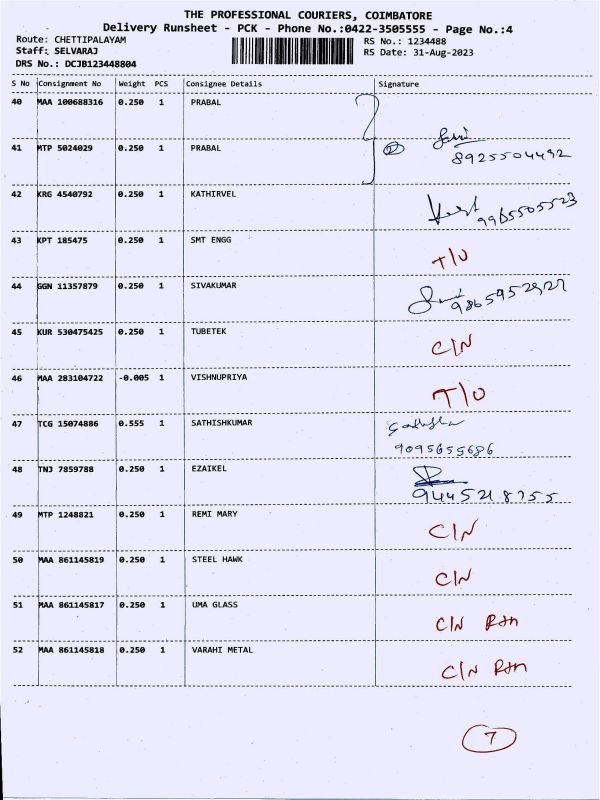 THE PROFESSIONAL COURIERS, COIMBATORE
Delivery Runsheet - PCK - Phone No.:0422-3505555 - Page No.:4
Route: CHETTIPALAYAM RS No.: 1234488
Staff: SELVARAJ RS Date: 31-Aug-2023
DRS No.: DCJB123448804
S No Consignment No Weight PCS Consignee Details Signature
40 MAA 100688316 0.250 1 PRABAL
41 MTP 5024029 0.250 1 PRABAL
2
8925504492
42 KRG 4540792 0.250 1 KATHIRVEL
9965505523
43 KPT 185475 0.250 1 SMT ENGG
T/U
44 GGN 11357879 0.250 1 SIVAKUMAR
45 KUR 530475425 0.250 1 TUBETEK
C/N
46 MAA 283104722 -0.005 1 VISHNUPRIYA
T/U
47 TCG 15074886 0.555 1 SATHISHKUMAR
9095655686
48 TNJ 7859788 0.250 1 EZAIKEL
49 MTP 1248821 0.250 1 REMI MARY
C/N
50 MAA 861145819 0.250 1 STEEL HAWK
C/N
51 MAA 861145817 0.250 1 UMA GLASS
C/N
52 MAA 861145818 0.250 1 VARAHI METAL
C/N
7